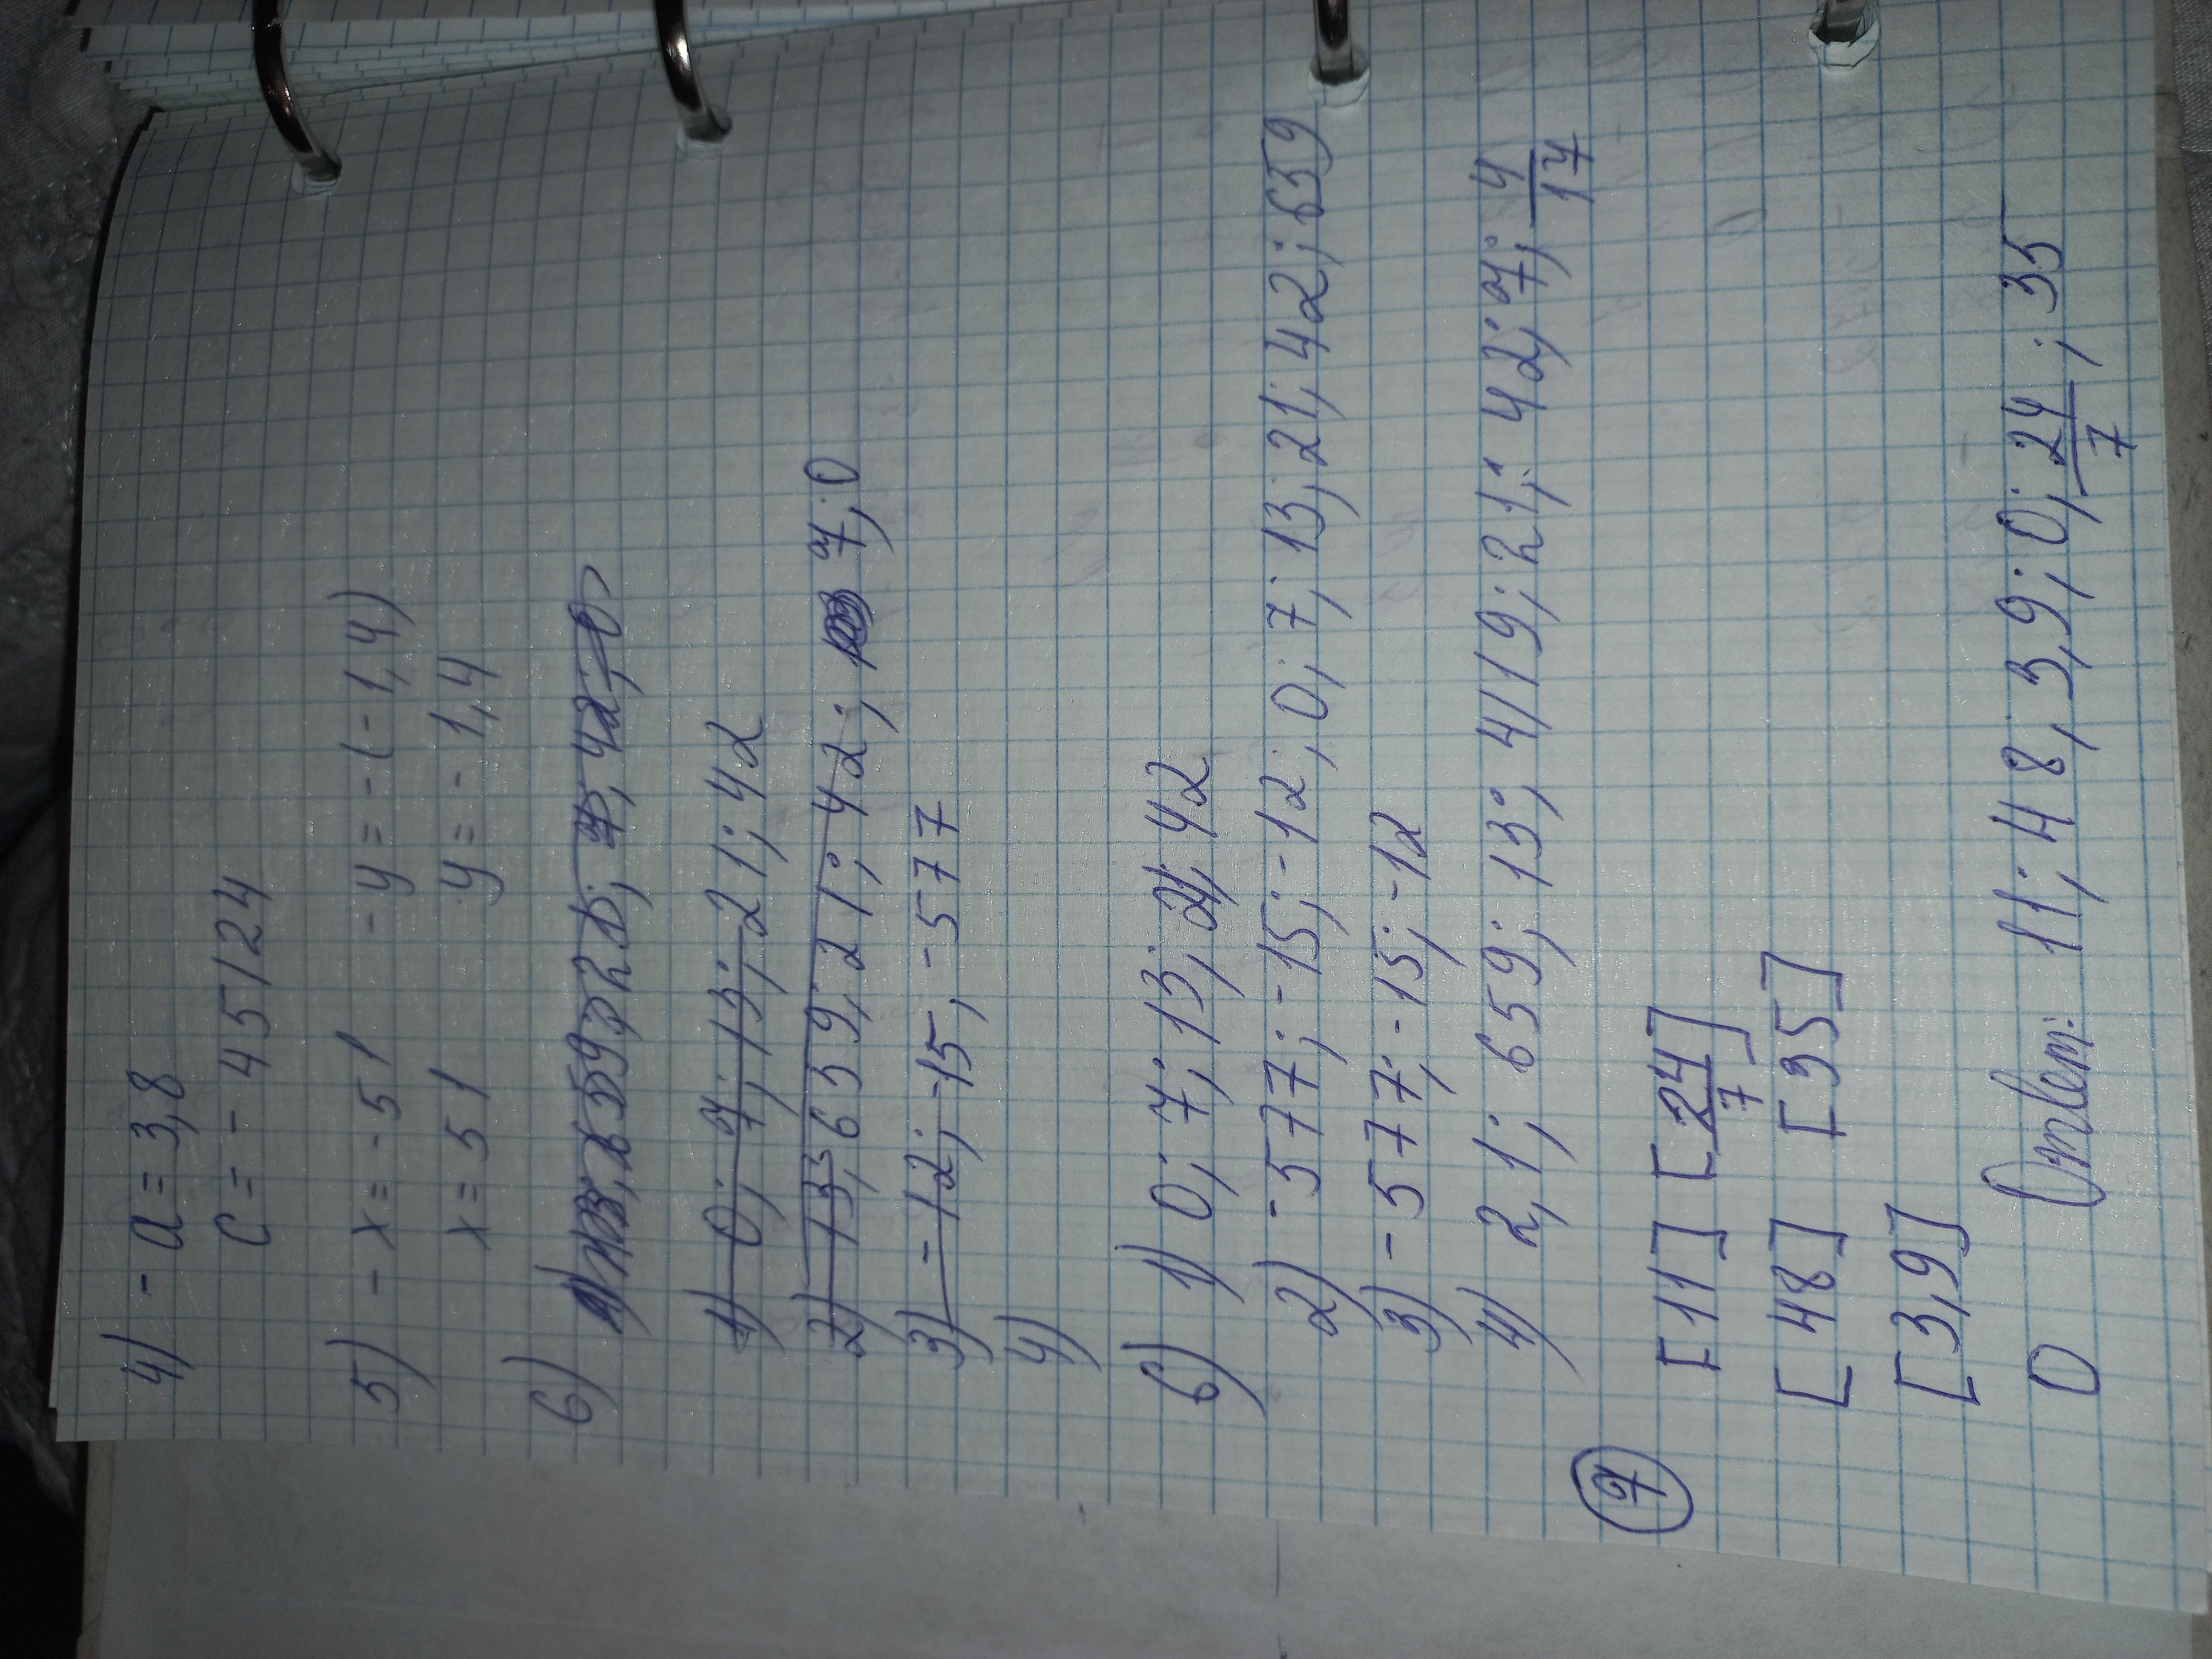 4) - a = 3,8
c = - 45/24
5) - x = - 51 - y = - (- 1,4)
x = 51 y = - 1,4
6)
1) 0; 7; 13; 21; 42
2) 13, 639, 21; 42; 7; 0
3) - 12; -15, - 577
4)
6) 1) 0; 7; 13; 21; 42
2) - 577; - 15; - 12; 0; 7; 13; 21; 42; 639
3) - 577; - 15; - 12
4) 2,1; 659; 13; 4/19; 21; 42; 7; 4/17
7 [11] [24/7]
[48] [35]
[3,9]
0 Ответ: 11; 48, 3,9; 0; 24/7; 35